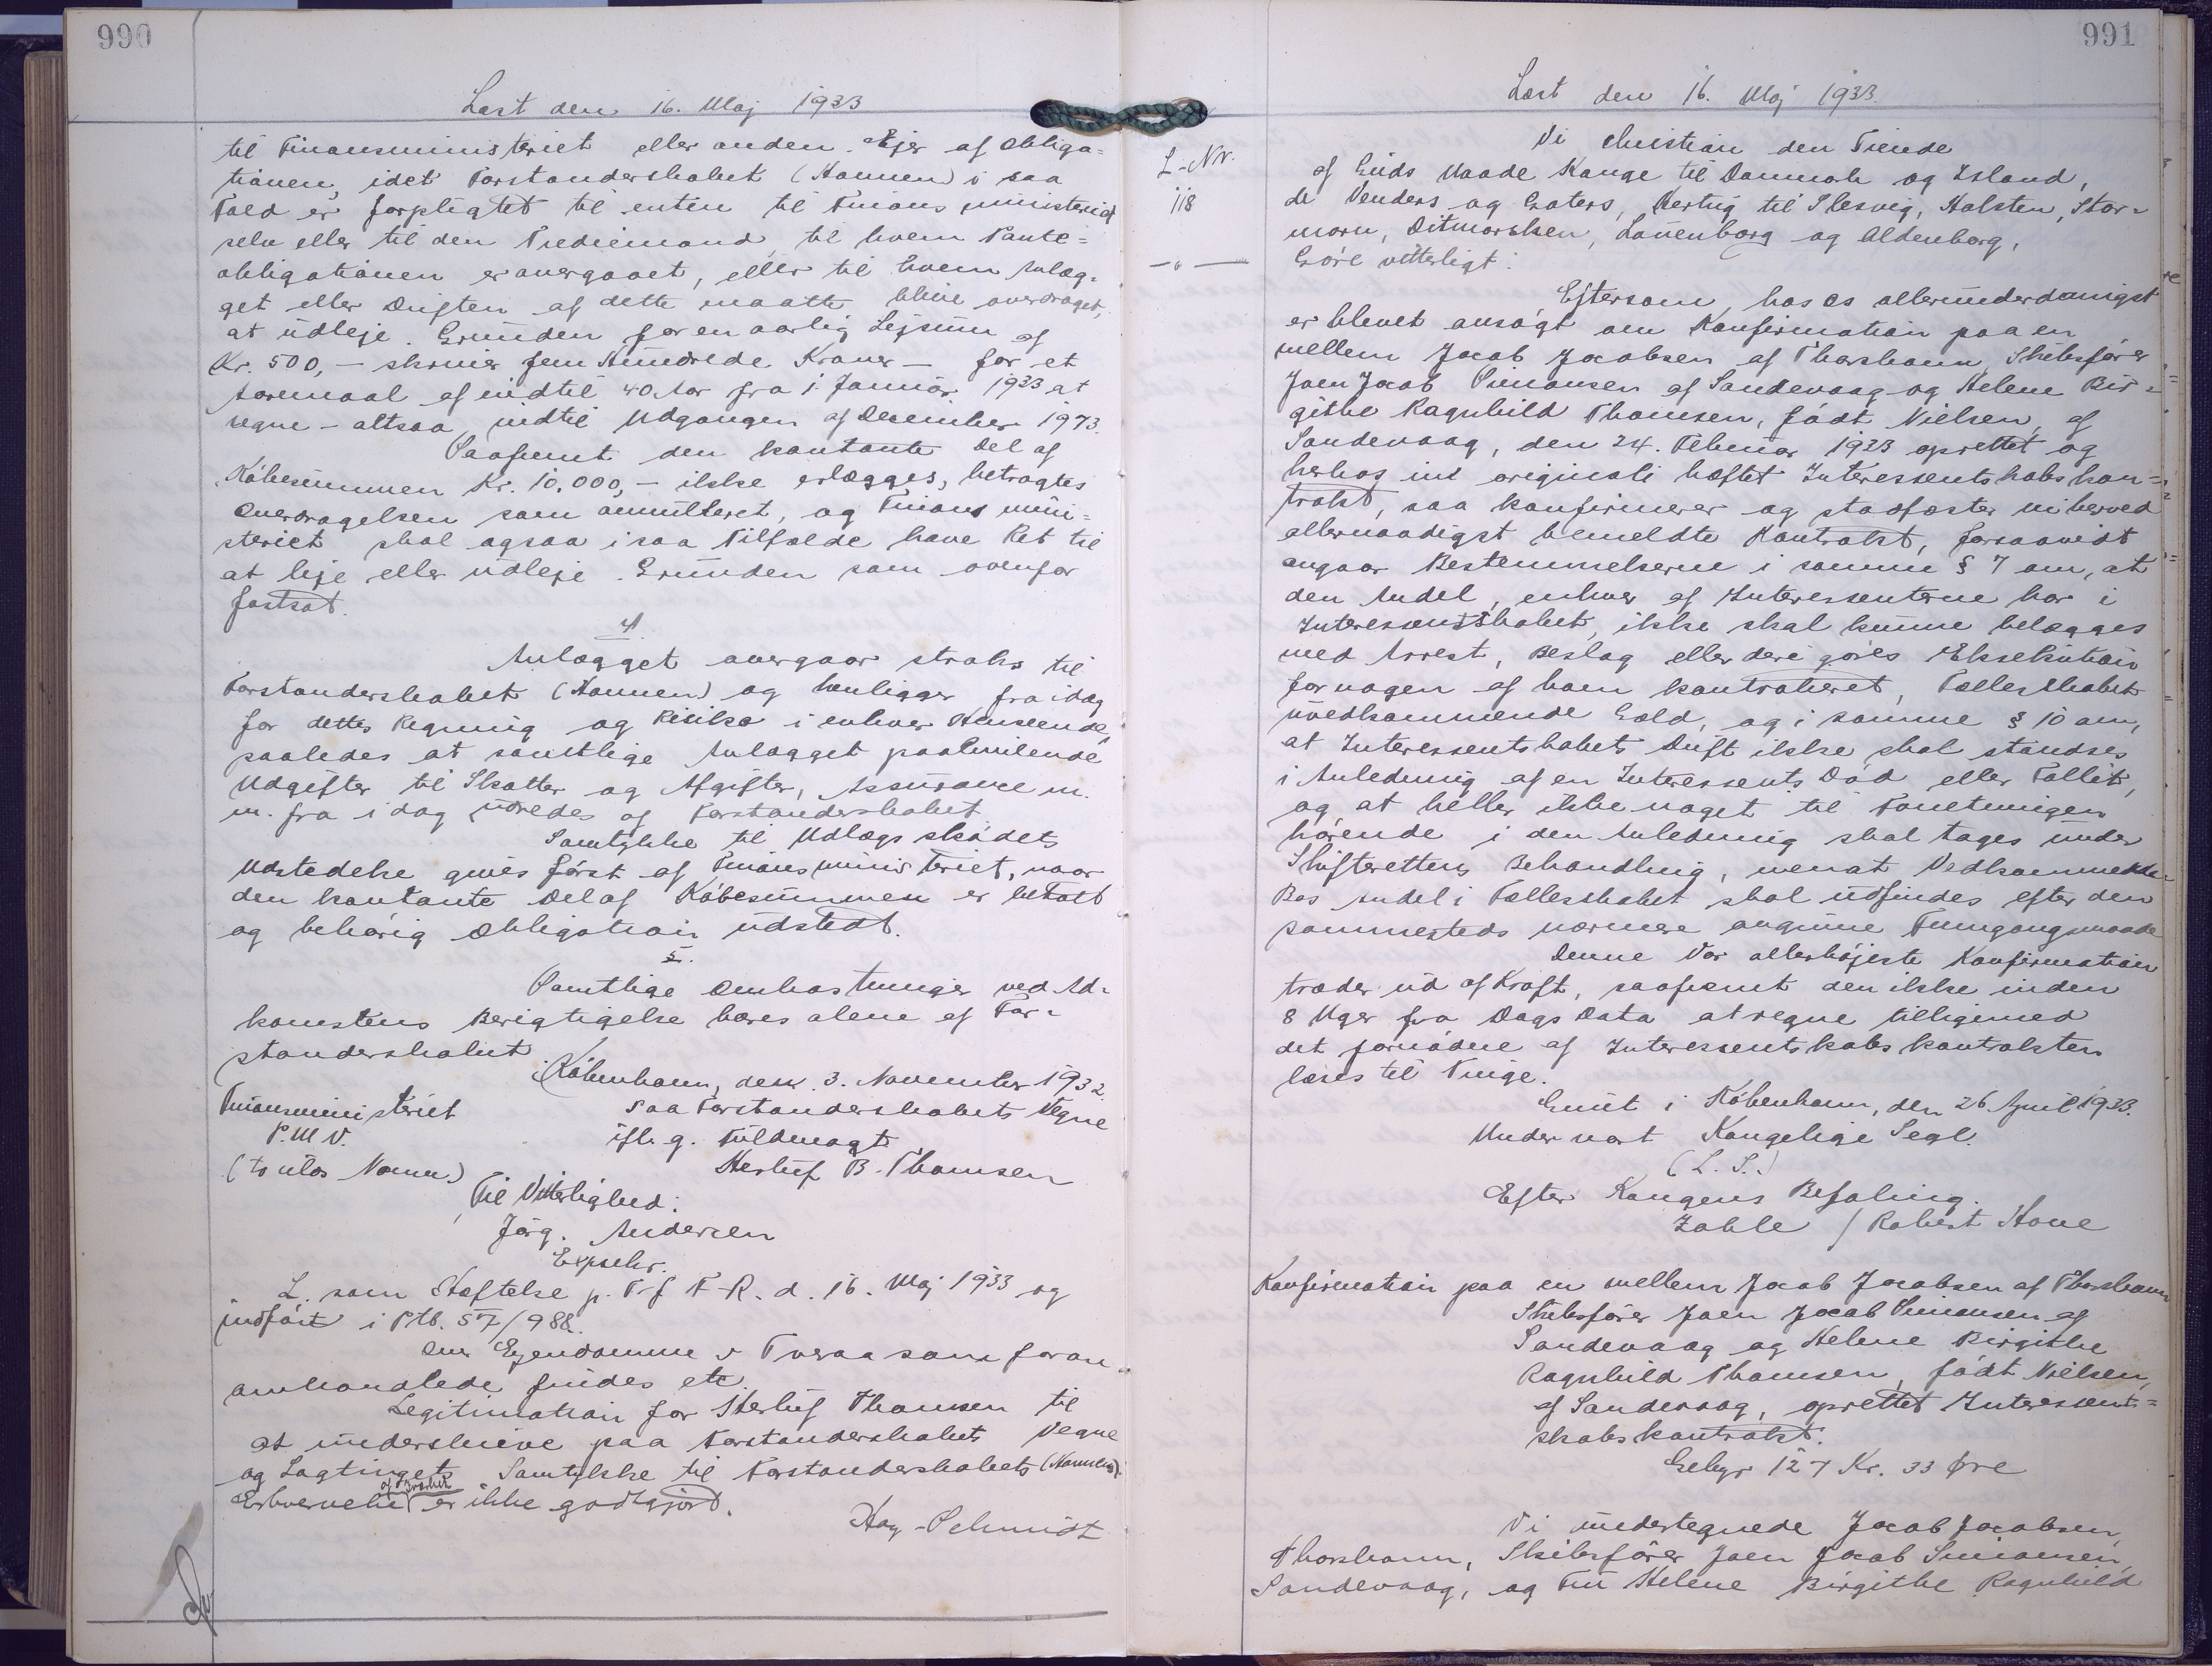 990
Læst den 16. Maj 1933
til Finansministeriet eller anden Ejer af Obliga=
tionen, idet Forstanderskabet (Havnen) i saa
Fald er forpligtet til enten til Finansministeriet
selv eller til den Trediemand, til hvem Pante=
obligationen er overgaaet, eller til hvem Anlæg=
get eller Driften af dette maatte blive overdraget,
at udleje Grunden for en aarlig Lejesum af
Kr. 500,- skriver fem Hundrede Kroner - for et
Aaremaal af indtil 40 Aar fra 1. Januar 1933 at
regne - altsaa indtil Udgangen af December 1973.
Saafremt den kontante Del af
Købesummen Kr. 10.000,- ikke erlægges, betragtes
Overdragelsen som annulleret, og Finansmini=
steriet skal ogsaa i saa Tilfælde have Ret til
at leje eller udleje Grunden som ovenfor
fastsat.
4.
Anlægget overgaar straks til
Forstanderskabet (Havnen) og henligger fra idag
for dettes Regning og Risiko i enhver Henseende,
saaledes at samtlige Anlægget paahvilende
Udgifter til Skatter og Afgifter, Assurance m.
m. fra i dag udredes af Forstanderskabet.
Samtykke til Udlægsskødets
Udstedelse gives først af Finansministeriet, naar
den kontante Del af Købesummen er betalt
og behørig Obligation udstedt.
5.
Samtlige Omkostninger ved Ad=
komstens Berigtigelse bæres alene af For=
standerskabet.
København, den 3. November 1932
Finansministeriet
Paa Forstanderskabets Vegne
P. M. V.
ifl. g. Fuldmagt
(to ulæs. Navne)
Herluf B. Thomsen
Til Vitterlighed:
Jørg. Andersen
Expsekr.
L. som Hæftelse p. T. f. F. R. d. 16. Maj 1933 og
indført i Ptb. SF/988.
Den Ejendomme i Tveraa som foran
omhandlede findes ett.
Legitimation for Herluf Thomsen til
at underskrive paa Forstanderskabets Vegne
og Lagtingets Samtykke til Forstanderskabets (Havnens)
Erhvervelse er ikke godtgjort.
Hay-Schmidt
991
Læst den 16. Maj 1933.
L-Nr.
118
Vi Christian den Tiende
af Guds Naade Konge til Danmark og Island,
de Venders og Goters, Hertug til Slesvig, Holsten, Stor=
marn, Ditmarsken, Lauenborg og Oldenborg,
Göre vitterligt:
Eftersom hos os allerunderdanigst
er blevet ansøgt om Konfirmation paa en
mellem Jacob Jacobsen af Thorshavn, Skibsfører
Joen Jacob Simonsen af Sandevaag og Helene Bir=
githe Ragnhild Thomsen, født Nielsen, af
Sandevaag, den 24. Februar 1933 oprettet og
herhos ind originali hæftet Interessentskabskon=
trakt, saa konfirmerer og stadfæster vi herved
allernaadigst bemeldte Kontrakt, forsaavidt
angaar Bestemmelserne i samme § 7 om, at
den Andel, enhver af Interessenterne har i
Interessentskabet, ikke skal kunne belægges
med Arrest, Beslag eller deri gøres Eksekution
for nogen af ham kontraheret, Fællesskabet
uvedkommende Gæld, og i samme § 10 om,
at Interessentskabets Drift ikke skal standses
i Anledning af en Interessents Død eller Fallit,
og at heller ikke noget til Forretningen
hørende i den Anledning skal tages under
Skifterettens Behandling, men at Vedkommende
Bos Andel i Fællesskabet skal udfindes efter den
sammesteds nærmere angivne Fremgangsmaade
Denne Vor allerhøjeste Konfirmation
træder ud af Kraft, saafremt den ikke inden
8 Uger fra Dags Dato at regne tilligemed
det fornødne af Interessentskabskontrakten
læses til Tinge.
Givet i København, den 26. April 1933.
Under vort Kongelige Segl.
(L. S.)
Efter Kongens Befaling.
Zahle / Robert Hove
Konfirmation paa en mellem Jacob Jacobsen af Thorshavn
Skibsfører Joen Jacob Simonsen af
Sandevaag og Helene Birgithe
Ragnhild Thomsen, født Nielsen,
af Sandevaag, oprettet Interessent=
skabskontrakt.
Gebyr 127 Kr. 33 Øre
Vi undertegnede Jacob Jacobsen,
Thorshavn, Skibsfører Joen Jacob Simonsen,
Sandevaag, og Fru Helene Birgithe Ragnhild